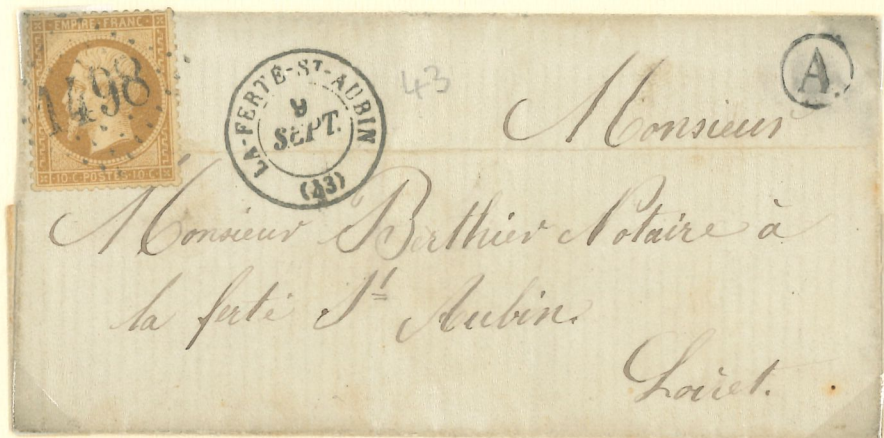 EMPIRE FRANC
1498
10·C·POSTES·10·C
LA-FERTÉ-ST-AUBIN
9
SEPT.
(43)
43
A
Monsieur
Monsieur Berthier Notaire à
la ferté St Aubin.
Loiret.